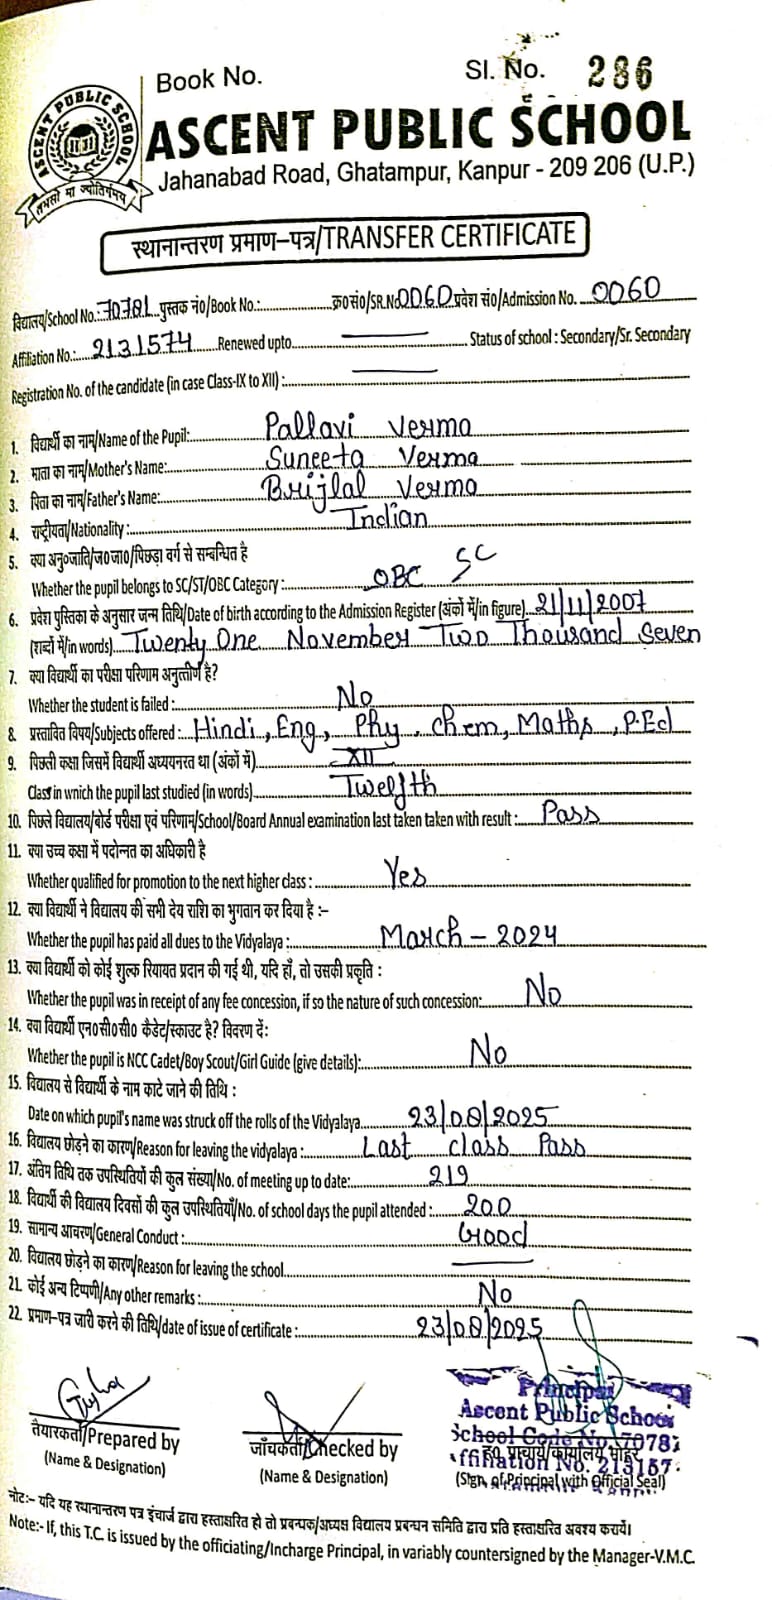 Book No.
Sl. No. 286
ASCENT PUBLIC SCHOOL
तमसो मा ज्योतिर्गमय
ASCENT PUBLIC SCHOOL
Jahanabad Road, Ghatampur, Kanpur - 209 206 (U.P.)
स्थानान्तरण प्रमाण–पत्र/TRANSFER CERTIFICATE
विद्यालय/School No.: 70781 पुस्तक नं०/Book No.: क्र०सं०/SR.No. 0060 प्रवेश सं०/Admission No. 0060
Affiliation No.: 2131574 Renewed upto — Status of school : Secondary/Sr. Secondary
Registration No. of the candidate (in case Class-IX to XII) : —
1. विद्यार्थी का नाम/Name of the Pupil: Pallavi Verma
2. माता का नाम/Mother's Name: Suneeta Verma
3. पिता का नाम/Father's Name: Brijlal Verma
4. राष्ट्रीयता/Nationality : Indian
5. क्या अनु०जाति/ज०जा०/पिछड़ा वर्ग से सम्बन्धित है
Whether the pupil belongs to SC/ST/OBC Category : OBC SC
6. प्रवेश पुस्तिका के अनुसार जन्म तिथि/Date of birth according to the Admission Register (अंकों में/in figure) 21/11/2007
(शब्दों में/in words) Twenty One November Two Thousand Seven
7. क्या विद्यार्थी का परीक्षा परिणाम अनुत्तीर्ण है?
Whether the student is failed : No
8. प्रस्तावित विषय/Subjects offered : Hindi, Eng, Phy, Chem, Maths, P.Ed
9. पिछली कक्षा जिसमें विद्यार्थी अध्ययनरत था (अंकों में) XII
Class in wnich the pupil last studied (in words) Twelfth
10. पिछले विद्यालय/बोर्ड परीक्षा एवं परिणाम/School/Board Annual examination last taken taken with result : Pass
11. क्या उच्च कक्षा में पदोन्नत का अधिकारी है
Whether qualified for promotion to the next higher class : Yes
12. क्या विद्यार्थी ने विद्यालय की सभी देय राशि का भुगतान कर दिया है :–
Whether the pupil has paid all dues to the Vidyalaya : March – 2024
13. क्या विद्यार्थी को कोई शुल्क रियायत प्रदान की गई थी, यदि हाँ, तो उसकी प्रकृति :
Whether the pupil was in receipt of any fee concession, if so the nature of such concession: No
14. क्या विद्यार्थी एन०सी०सी० कैडेट/स्काउट है? विवरण दें:
Whether the pupil is NCC Cadet/Boy Scout/Girl Guide (give details): No
15. विद्यालय से विद्यार्थी के नाम काटे जाने की तिथि :
Date on which pupil's name was struck off the rolls of the Vidyalaya 23/08/2025
16. विद्यालय छोड़ने का कारण/Reason for leaving the vidyalaya : Last class Pass
17. अंतिम तिथि तक उपस्थितियों की कुल संख्या/No. of meeting up to date: 219
18. विद्यार्थी की विद्यालय दिवसों की कुल उपस्थितियाँ/No. of school days the pupil attended : 200
19. सामान्य आचरण/General Conduct : Good
20. विद्यालय छोड़ने का कारण/Reason for leaving the school —
21. कोई अन्य टिप्पणी/Any other remarks : No
22. प्रमाण–पत्र जारी करने की तिथि/date of issue of certificate : 23/08/2025
तैयारकर्ता/Prepared by
(Name & Designation)
जाँचकर्ता/Checked by
(Name & Designation)
Principal
Ascent Public School
School Code No. 7078
ह० प्राचार्य/कार्यालय मोहर
ffiliation No. 213157
(Sign. of Principal with Official Seal)
नोट:– यदि यह स्थानान्तरण पत्र इंचार्ज द्वारा हस्ताक्षरित हो तो प्रबन्धक/अध्यक्ष विद्यालय प्रबन्धन समिति द्वारा प्रति हस्ताक्षरित अवश्य करायें।
Note:- If, this T.C. is issued by the officiating/Incharge Principal, in variably countersigned by the Manager-V.M.C.